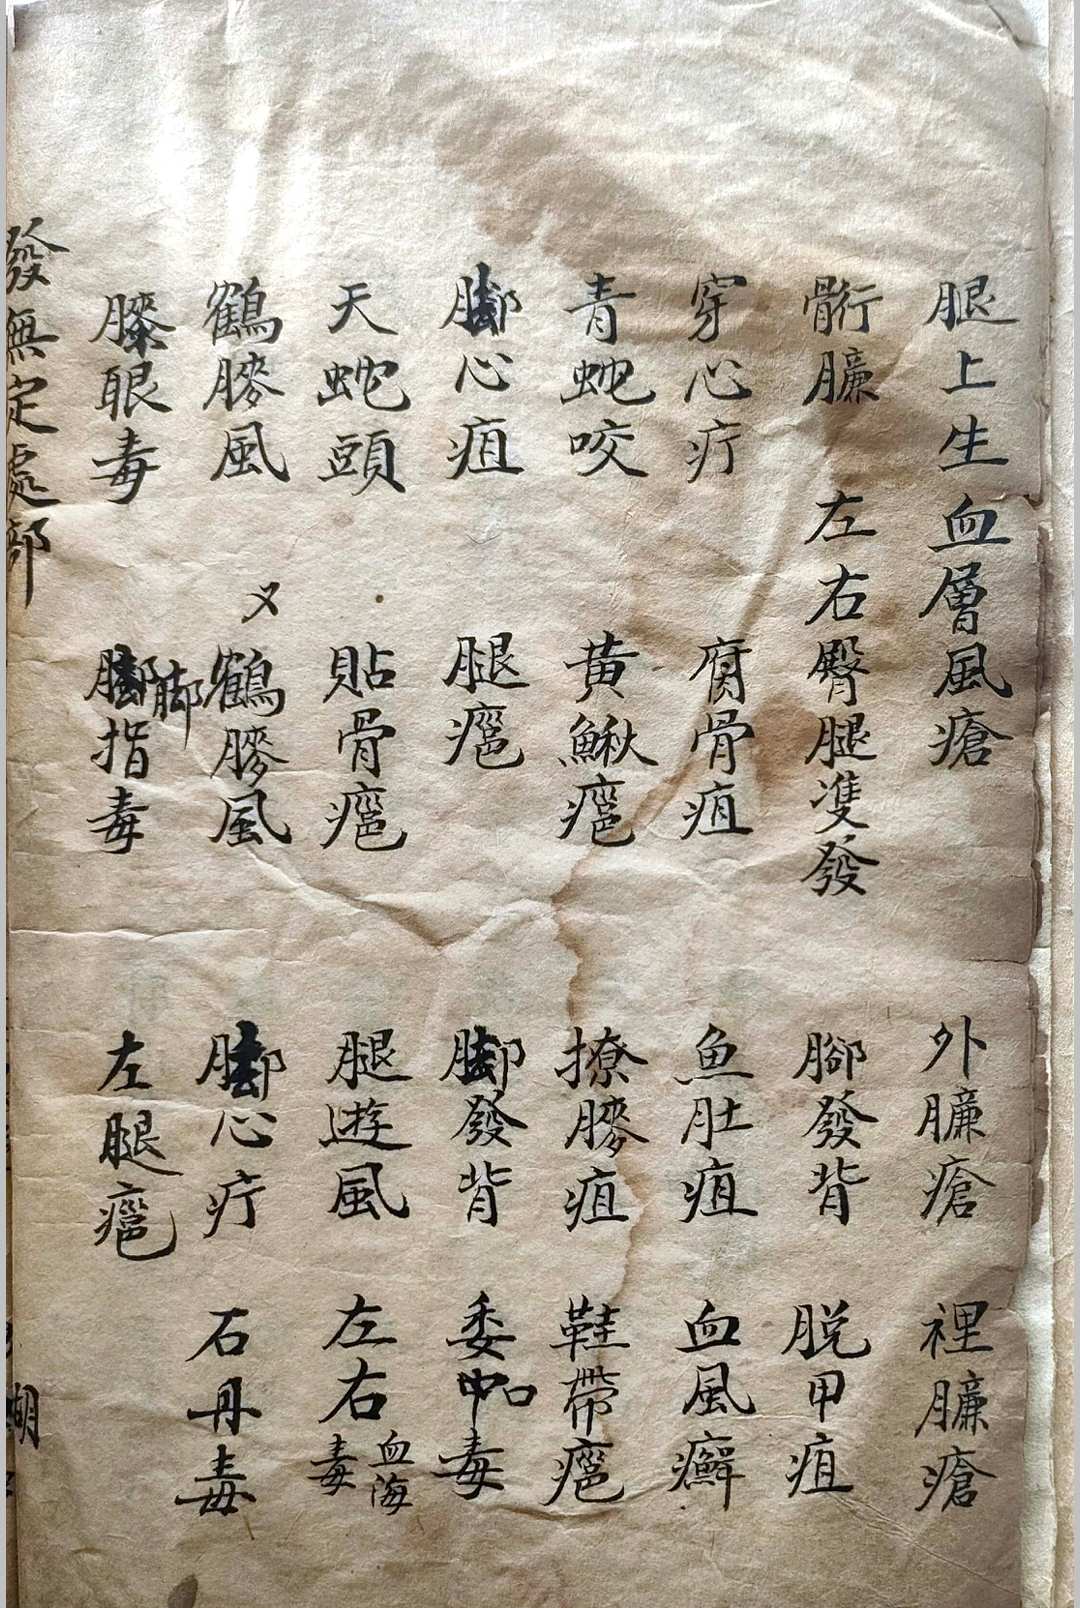 腿上生血層風瘡 外臁瘡 裡臁瘡
骭臁 左右臀腿隻發 腳發背 脱甲疽
穿心疔 腐骨疽 魚肚疽 血風癬
青蛇咬 黃鰍癰 撩膝疽 鞋帶癰
脚心疽 腿癰 脚發背 委中毒
天蛇頭 貼骨癰 腿遊風 左右血海毒
鶴膝風 又鶴膝風 脚心疔 石丹毒
膝眼毒 脚指毒 左腿癰
發無定處部